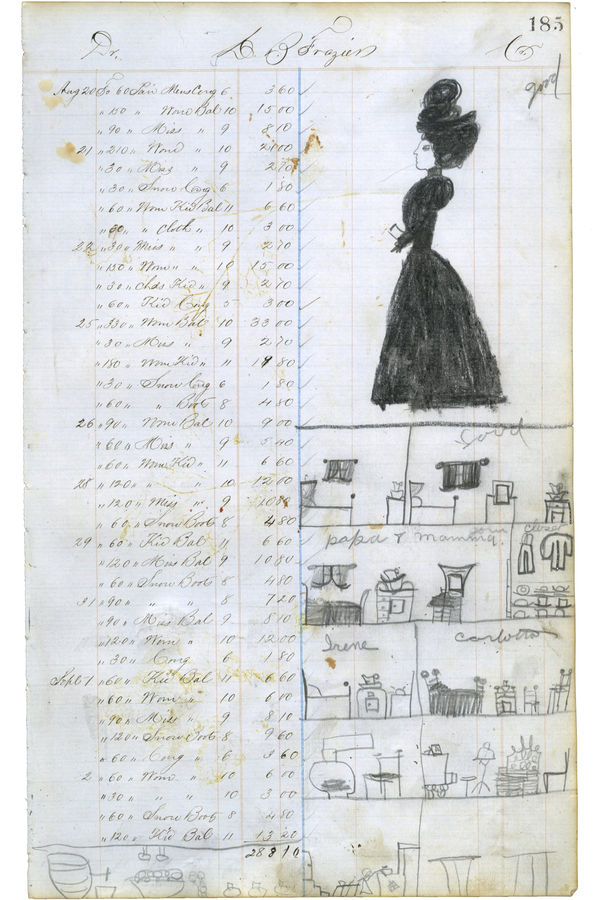 185
Dr. L B Frazier Cr
good
Aug 20 To 60 Pair Mens Cong 6 3 60
" 150 " Wom Bal 10 15 00
" 90 " Miss " 9 8 10
21 " 210 " Wom " 10 21 00
" 30 " Miss " 9 2 70
" 30 " Snow Cong 6 1 80
" 60 " Wom Kid Bal 11 6 60
" 30 " " Cloth " 10 3 00
22 " 30 " Miss " " 9 2 70
" 150 " Wom " " 10 15 00
" 30 " Chds Kid " 9 2 70
" 60 " Kid Cong 5 3 00
25 " 330 " Wom Bal 10 33 00
" 30 " Miss " 9 2 70
" 180 " Wom Kid " 11 19 80
" 30 " Snow Cong 6 1 80
" 60 " " Boot 8 4 80
26 " 90 " Wom Bal 10 9 00
" 60 " Miss " 9 5 40
" 60 " Wom Kid " 11 6 60
28 " 120 " " " 10 12 00
" 120 " Miss " 9 10 80
" 60 " Snow Boot 8 4 80
29 " 60 " Kid Bal 11 6 60
" 120 " Miss Bal 9 10 80
" 60 " Snow Boot 8 4 80
31 " 90 " " " 8 7 20
" 90 " Miss Bal 9 8 10
" 120 " Wom " 10 12 00
" 30 " Cong 6 1 80
Sept 1 " 60 " Kid Bal 11 6 60
" 60 " Wom " 10 6 00
" 90 " Miss " 9 8 10
" 120 " Snow Boot 8 9 60
" 60 " Cong " 6 3 60
2 " 60 " Wom " 10 6 00
" 30 " " 10 3 00
" 60 " Snow Boot 8 4 80
" 120 " Kid Bal 11 13 20
288 10
Good
papa & mamma.
closet
Irene
Carlotta